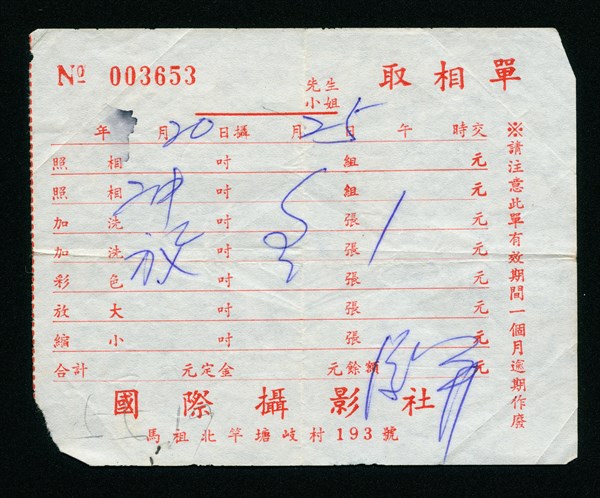 No 003653 先生 小姐 取相單
年 月20日攝 月25日 午 時交
照相 吋 組 元
照相 吋 組 元
加洗 吋 張 1 元
加洗 放 吋 張 元
彩色 吋 張 元
放大 吋 張 元
縮小 吋 張 元
合計 元定金 元餘額 元
國際攝影社
馬祖北竿塘岐村193號
※請注意此單有效期間一個月逾期作廢